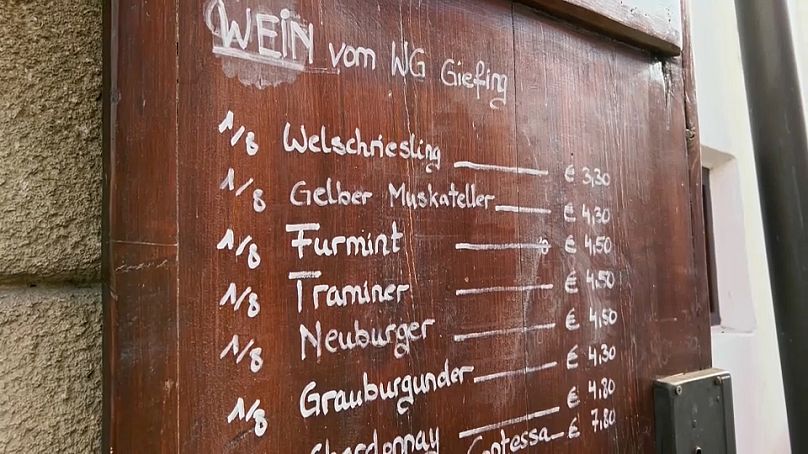 WEIN vom WG Giefing
1/8 Welschriesling € 3,30
1/8 Gelber Muskateller € 4,30
1/8 Furmint € 4,50
1/8 Traminer € 4,50
1/8 Neuburger € 4,50
1/8 Grauburgunder € 4,30
Chardonnay € 4,80
Contessa € 7,80